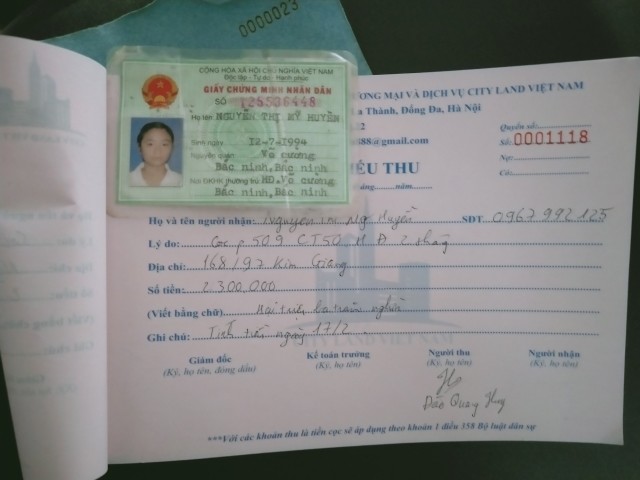 0000023
CỘNG HÒA XÃ HỘI CHỦ NGHĨA VIỆT NAM
Độc lập - Tự do - Hạnh phúc
GIẤY CHỨNG MINH NHÂN DÂN
SỐ 125536448
Họ tên: NGUYỄN THỊ MỸ HUYỀN
Sinh ngày 12-7-1994
Nguyên quán Võ cường
Bắc ninh, Bắc ninh
Nơi ĐKHK thường trú HĐ. Võ cường
Bắc ninh, Bắc ninh
ƯƠNG MẠI VÀ DỊCH VỤ CITY LAND VIỆT NAM
a Thành, Đống Đa, Hà Nội
2
88@gmail.com
Quyển số:
Số: 0001118
Nợ:
Có:
IẾU THU
áng.....năm......
Họ và tên người nhận: Nguyễn Thị Mỹ Huyền SĐT 0967 992 125
Lý do: Cọc p 509 CT50 HĐ 2 tháng
Địa chỉ: 168/97 Kim Giang
Số tiền: 2.300.000
(Viết bằng chữ) Hai triệu ba trăm nghìn
Ghi chú: Tính từ ngày 17/2.
CITY LAND VIỆT NAM
Giám đốc Kế toán trưởng Người thu Người nhận
(Ký, họ tên, đóng dấu) (Ký, họ tên) (Ký, họ tên) (Ký, họ tên)
Đào Quang Huy
***Với các khoản thu là tiền cọc sẽ áp dụng theo khoản 1 điều 358 Bộ luật dân sự